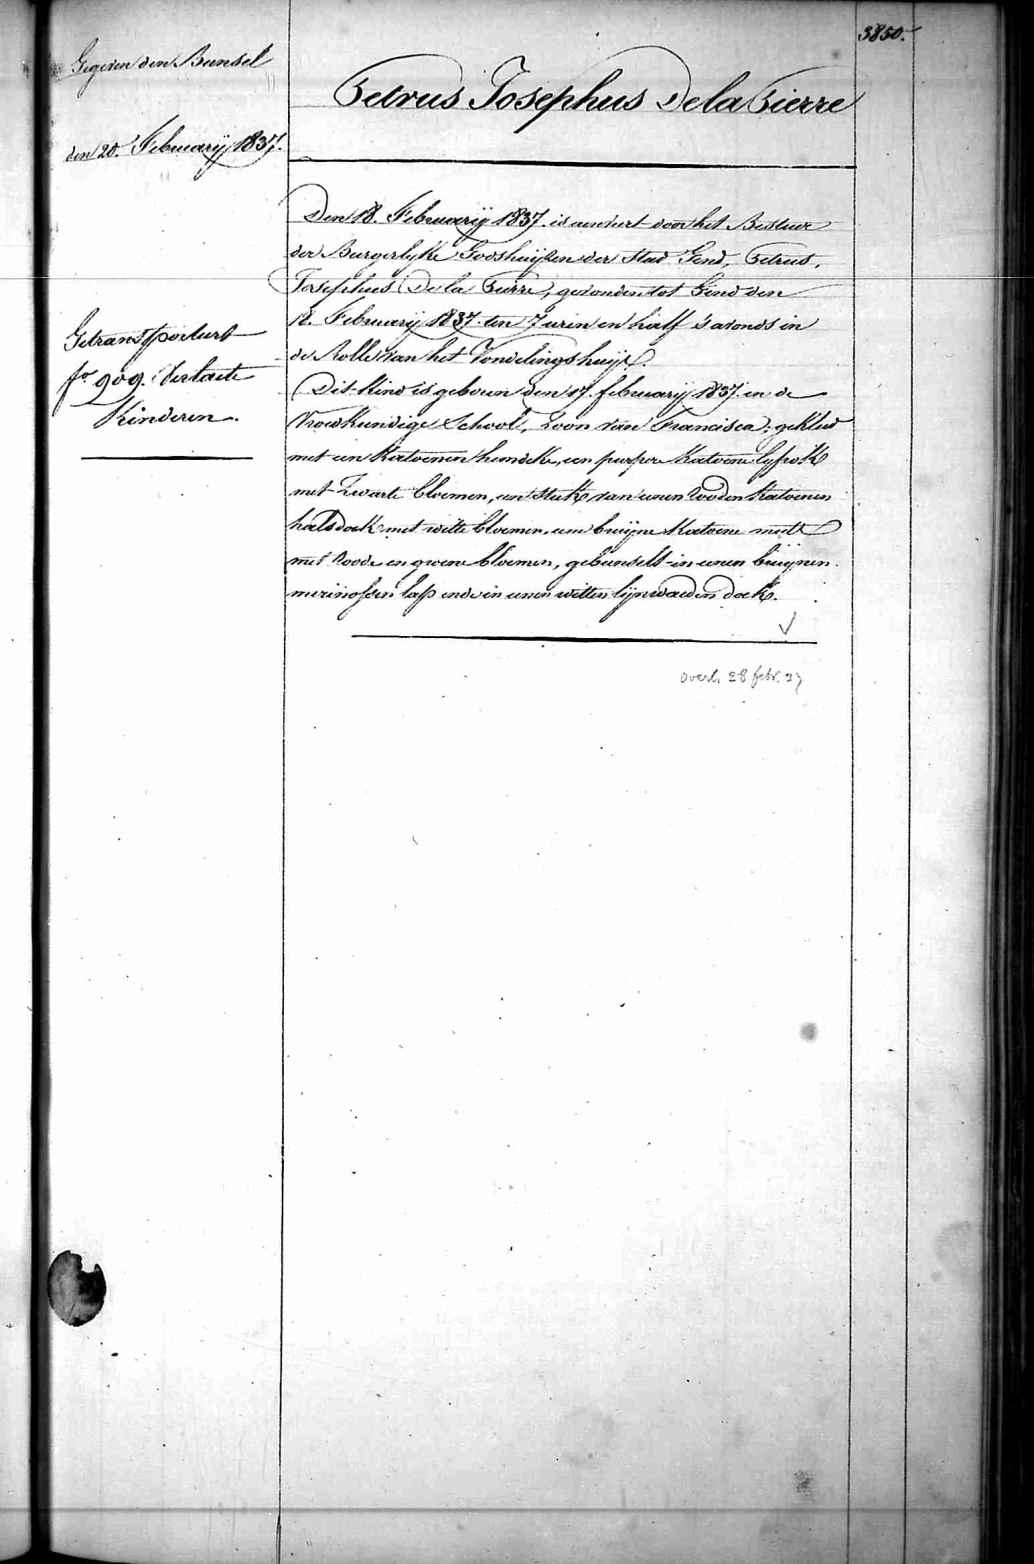 3850.
Petrus Josephus De la Pierre
Gegeven den Bunsel
den 20. Februarij 1837.
Den 18. Februarij 1837. is aenveert door het Bestuer
der Burgerlyke Godshuijsen der stad Gend, Petrus,
Josephus De la Pierre, gevonden tot Gend den
18. Februarij 1837. ten 7 uren en half 's avonds in
de Rolle van het Vondelingshuijs.
Getransporteert
fo. 909. Verlaete
Kinderen.
Dit kind is geboren den 17. februarij 1837. in de
Vroedkundige School, zoon van Francisca; gekleed
met een katoenen hemdeke, een purper katoene lyfrok
met zwarte bloemen, een stuk van eenen rooden katoenen
halsdoek met witte bloemen, een bruijne katoene muts
met roode en groene bloemen, gebunselt in eenen bruijnen
merinossen lap ende in eenen witten lijnwaeden doek.
overl. 28 febr. 37